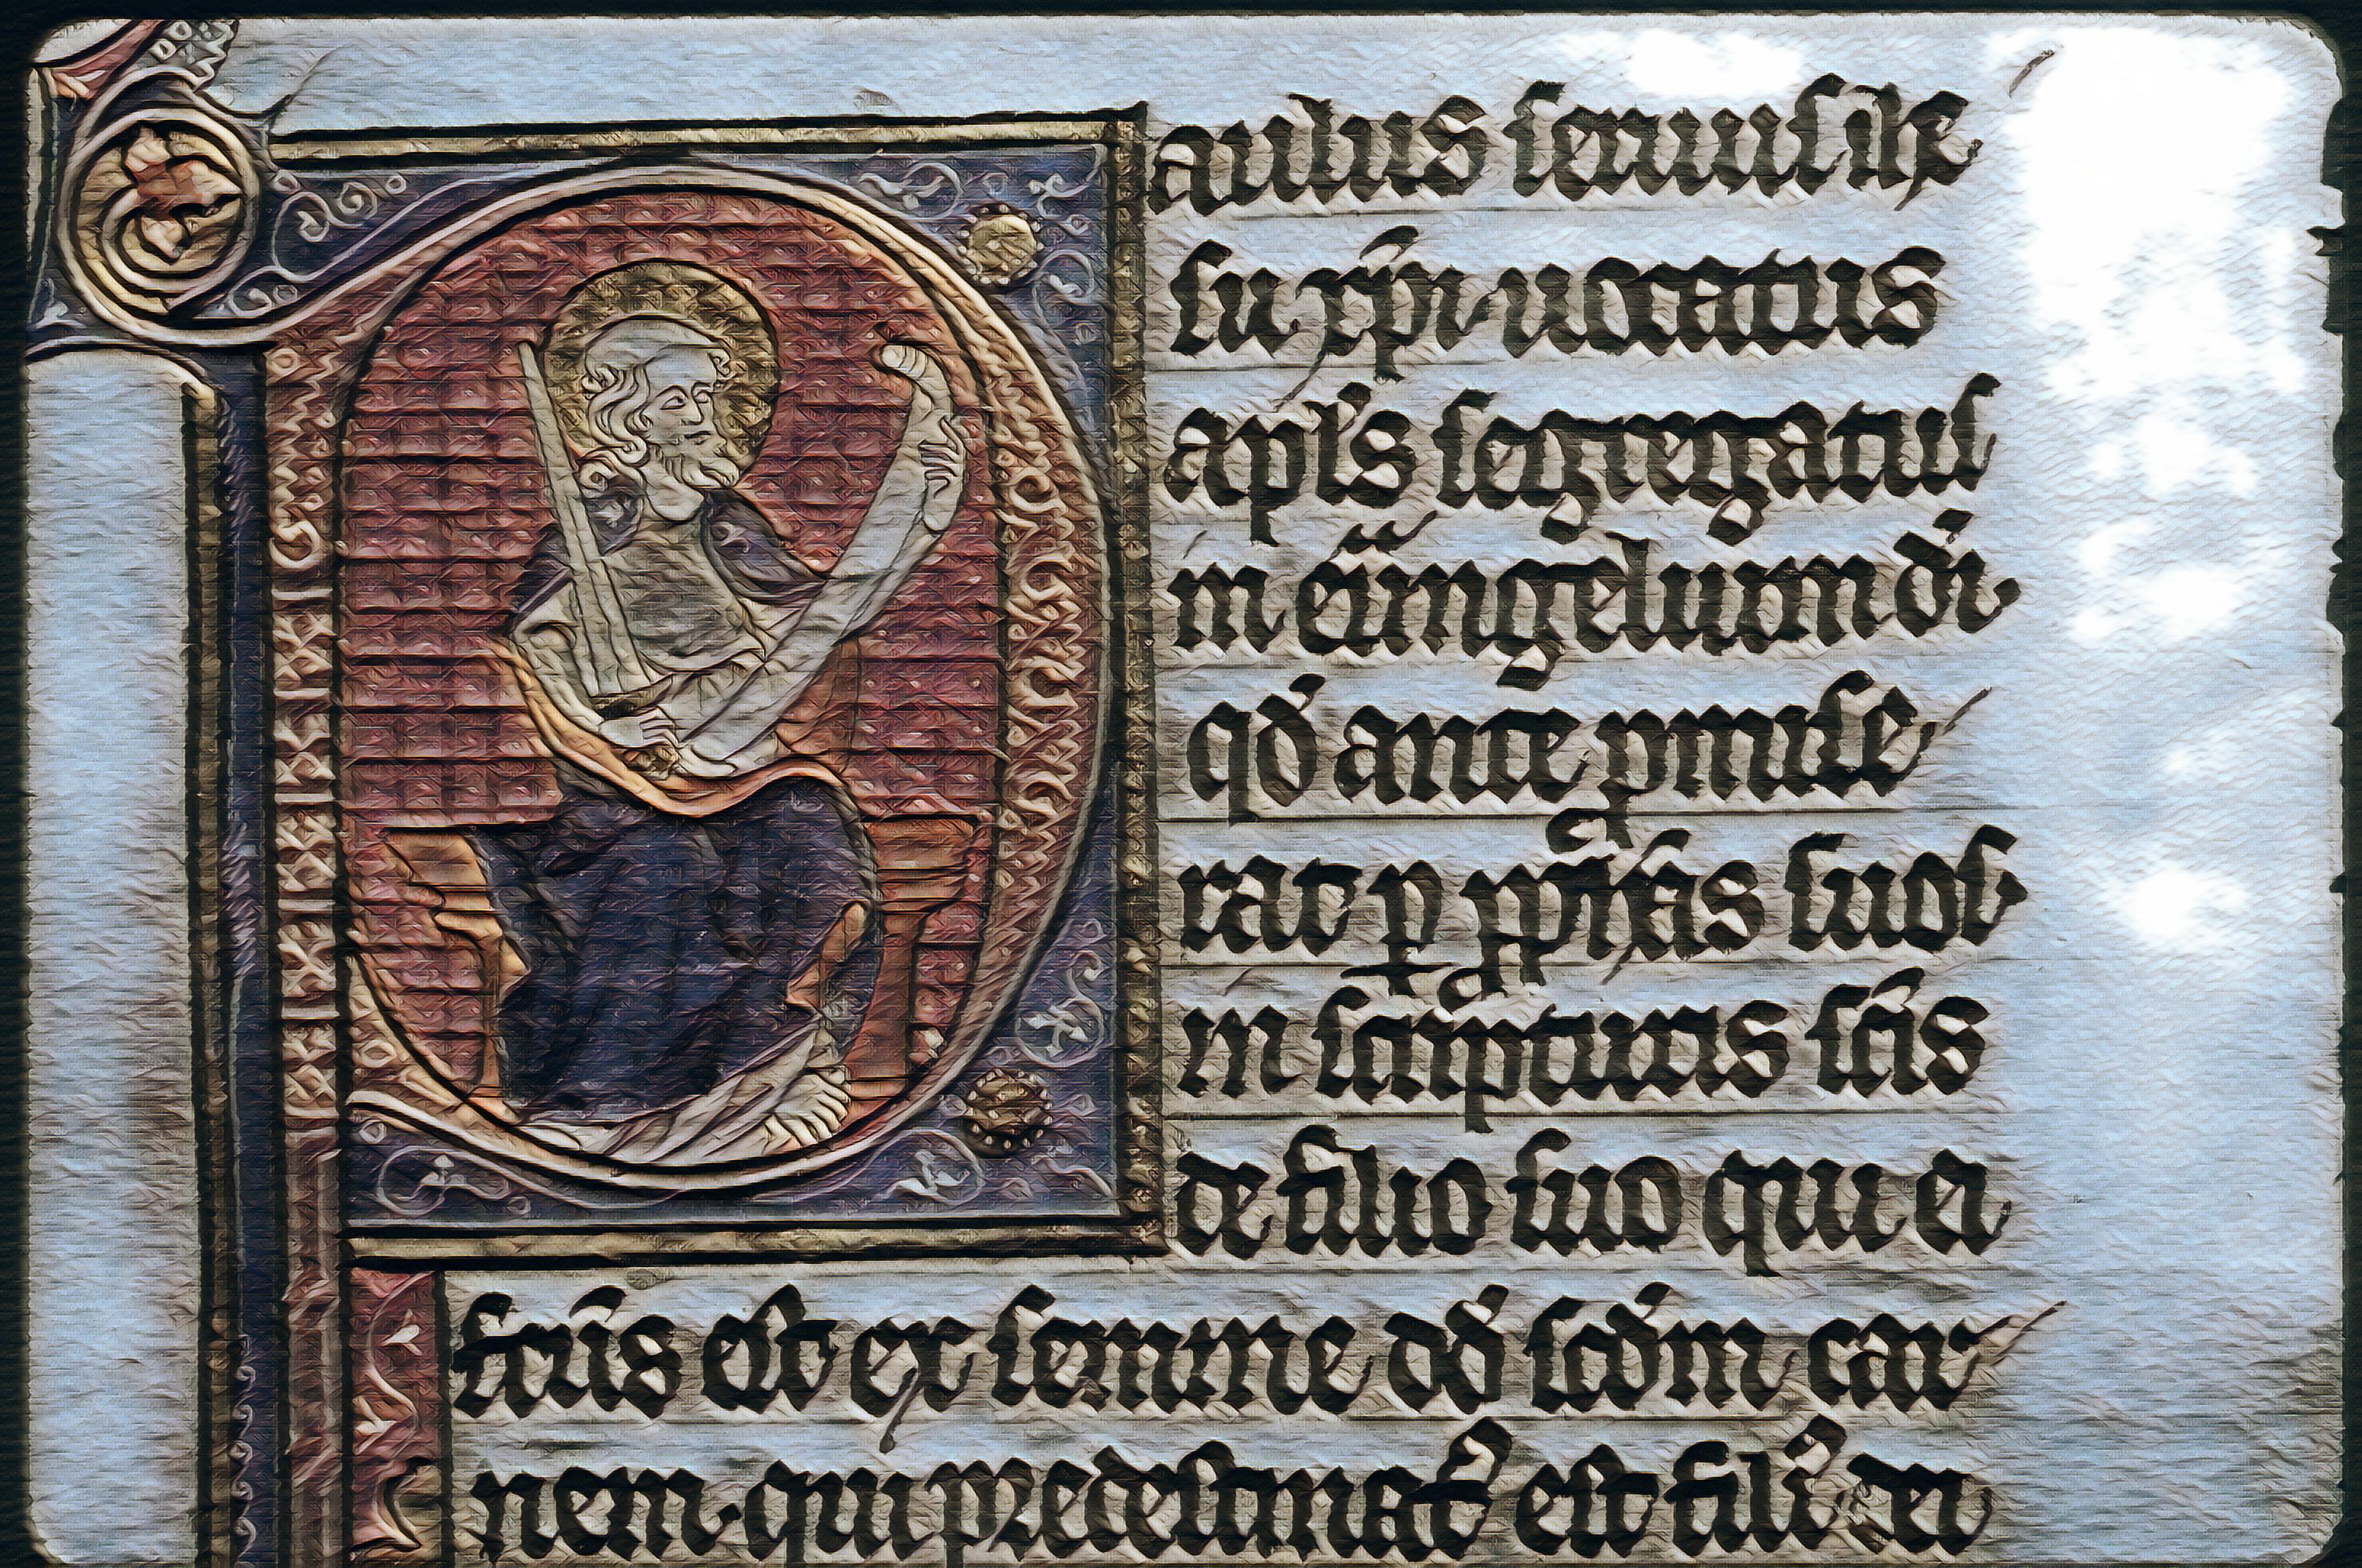 Paulus seruus ihe
su xp̄i uocatus
apl's segregatus
in eūangelium dī
qd̄ ante pmise
rat p pphās suos
in scripturis scīs
de filio suo qui ei
factus est ex semine dd̄ scd̄m car
nem·qui predestinat᷒ est fili᷒ dei